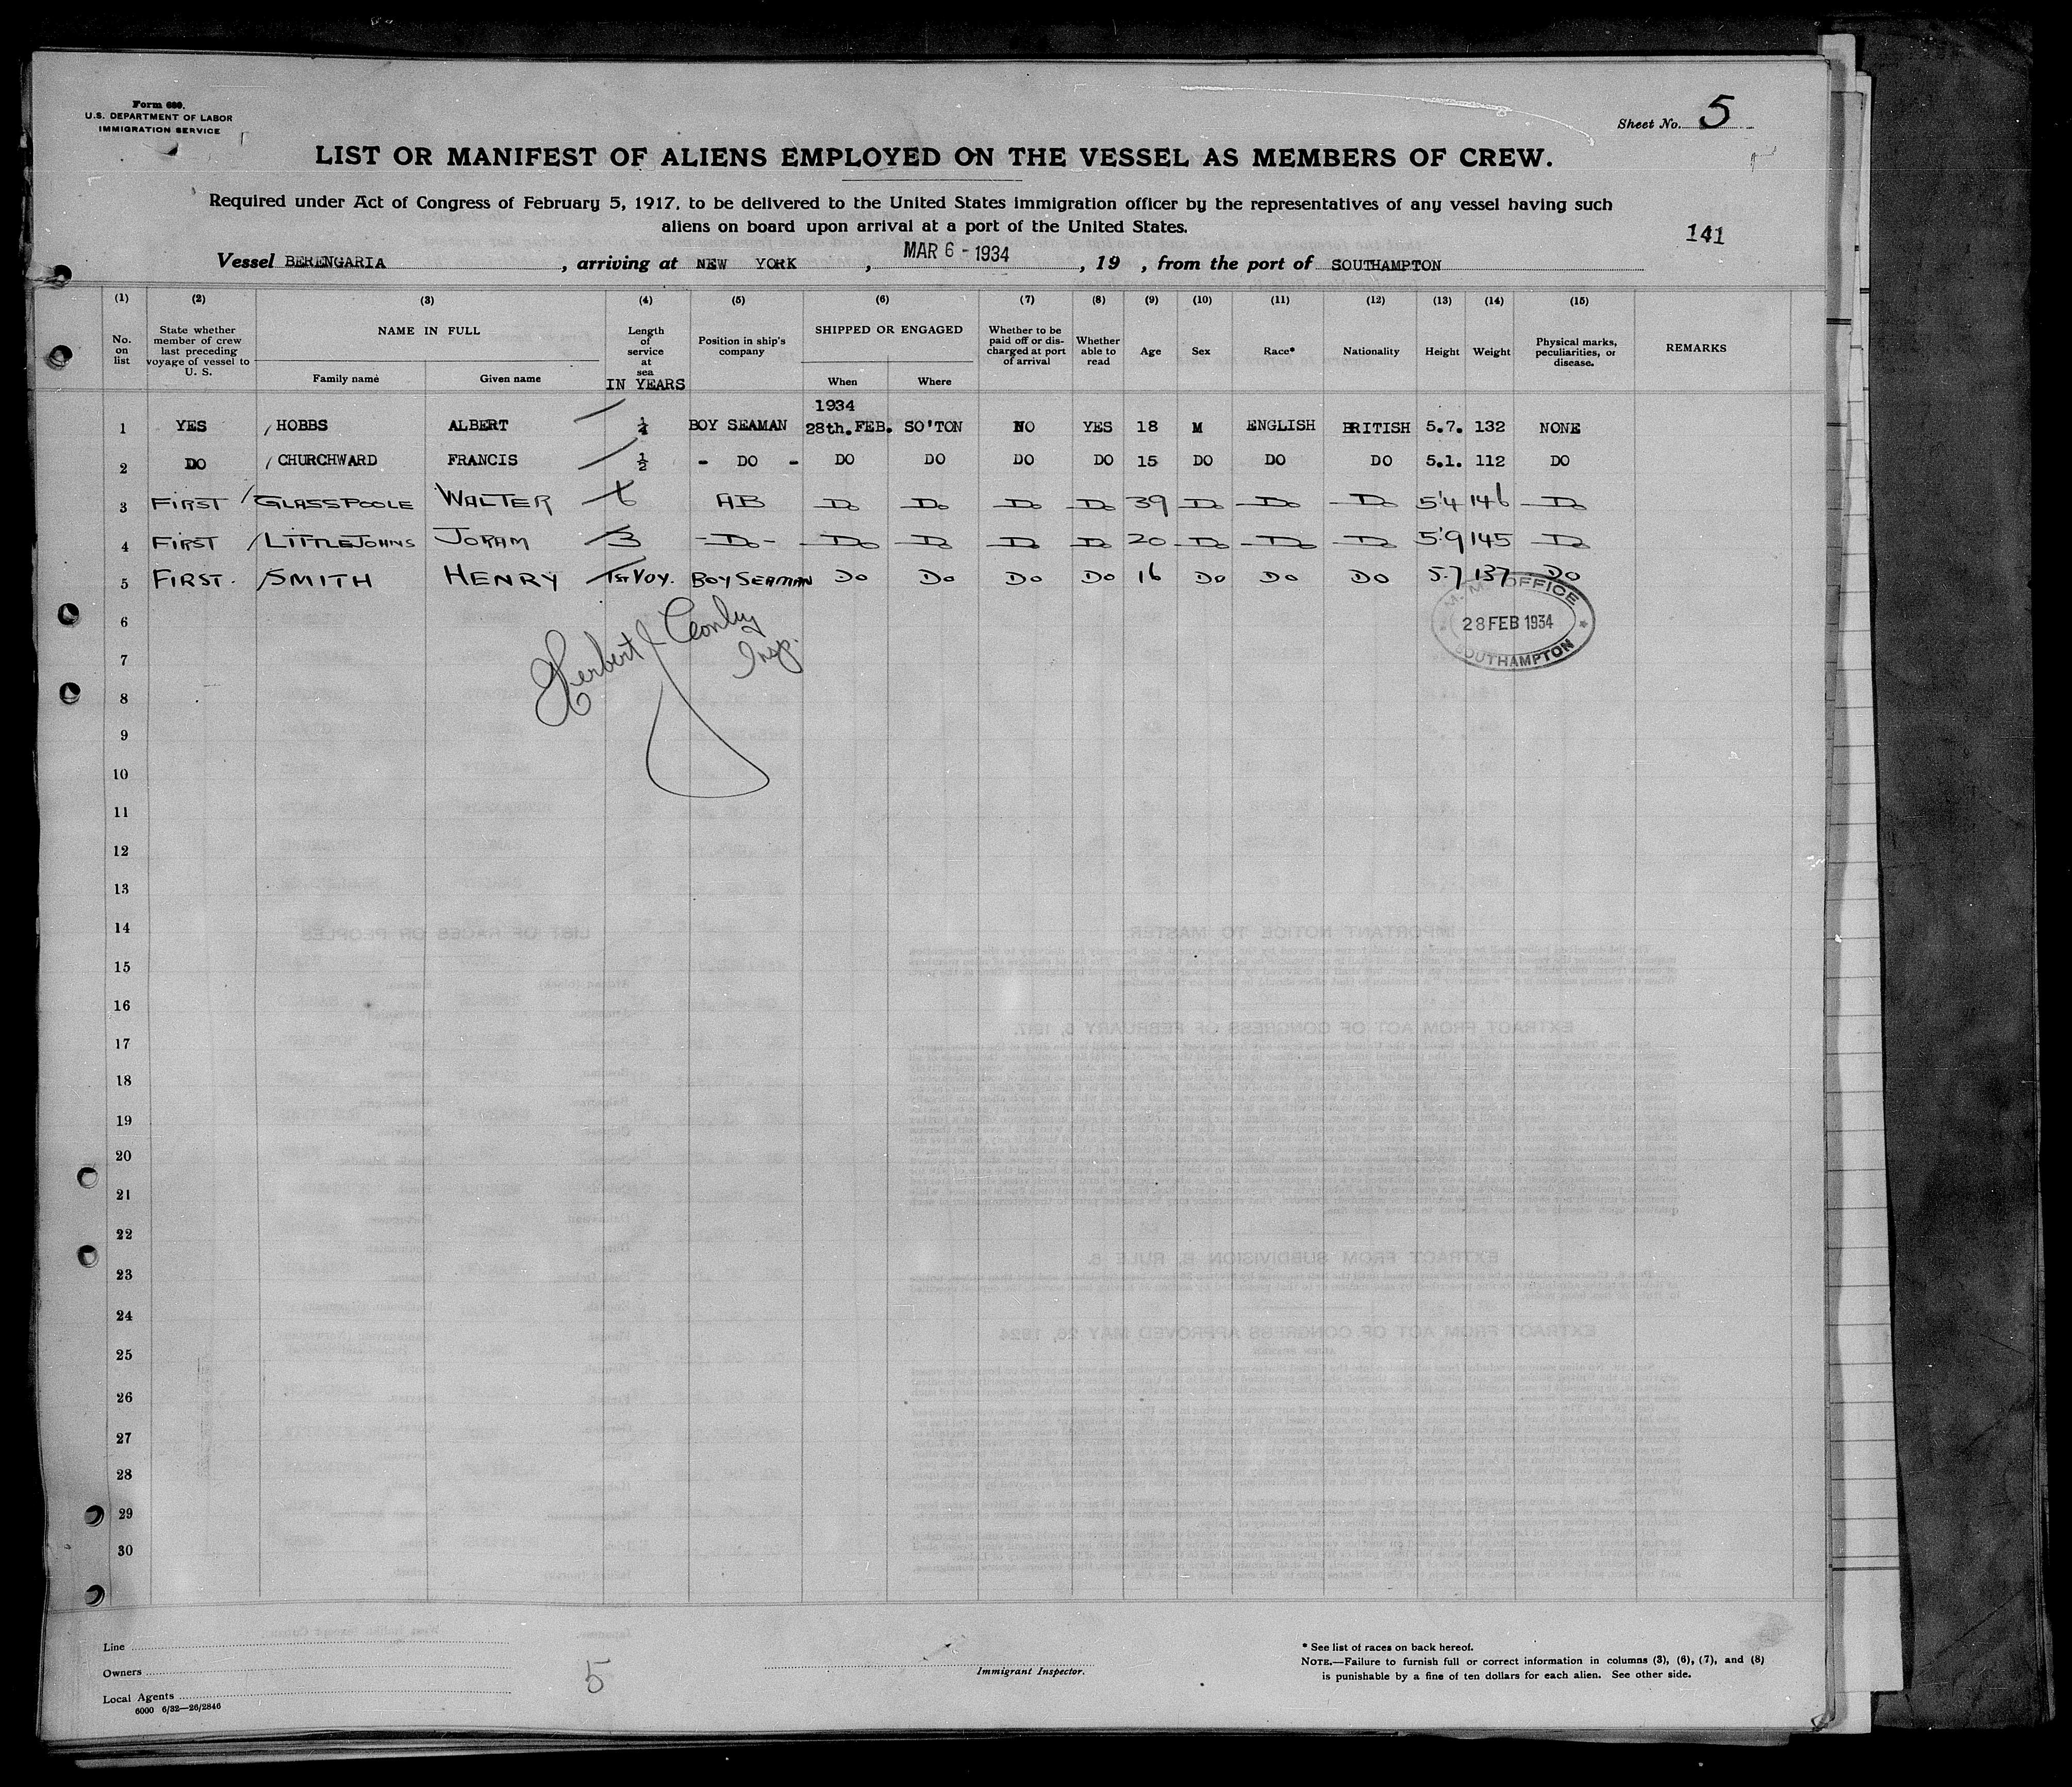 Form 680.
U.S. DEPARTMENT OF LABOR
IMMIGRATION SERVICE
Sheet No. 5
LIST OR MANIFEST OF ALIENS EMPLOYED ON THE VESSEL AS MEMBERS OF CREW.
Required under Act of Congress of February 5, 1917, to be delivered to the United States immigration officer by the representatives of any vessel having such
aliens on board upon arrival at a port of the United States.
141
Vessel BERENGARIA, arriving at NEW YORK, MAR 6 - 1934, 19 , from the port of SOUTHAMPTON
(1) (2) (3) (4) (5) (6) (7) (8) (9) (10) (11) (12) (13) (14) (15)
No. on list
State whether member of crew last preceding voyage of vessel to U. S.
NAME IN FULL
Family name
Given name
Length of service at sea
IN YEARS
Position in ship's company
SHIPPED OR ENGAGED
When
Where
Whether to be paid off or discharged at port of arrival
Whether able to read
Age
Sex
Race*
Nationality
Height
Weight
Physical marks, peculiarities, or disease.
REMARKS
1934
1 YES HOBBS ALBERT ¼ BOY SEAMAN 28th. FEB. SO'TON NO YES 18 M ENGLISH BRITISH 5.7. 132 NONE
2 DO CHURCHWARD FRANCIS ½ - DO - DO DO DO DO 15 DO DO DO 5.1. 112 DO
3 FIRST GLASSPOOLE WALTER 6 AB Do Do Do Do 39 Do Do Do 5'4 146 Do
4 FIRST LITTLEJOHNS JORAM 3 -Do- Do Do Do Do 20 Do Do Do 5'9 145 Do
5 FIRST. SMITH HENRY 1ST VOY. BOY SEAMAN DO DO DO DO 16 DO DO DO 5.7 137 DO
M. M. OFFICE
28 FEB 1934
SOUTHAMPTON
Herbert J Conly
Insp.
6
7
8
9
10
11
12
13
14
15
16
17
18
19
20
21
22
23
24
25
26
27
28
29
30
Line
Owners
Local Agents
6000 6/32—26/2846
5
Immigrant Inspector.
* See list of races on back hereof.
NOTE.—Failure to furnish full or correct information in columns (3), (6), (7), and (8)
is punishable by a fine of ten dollars for each alien. See other side.